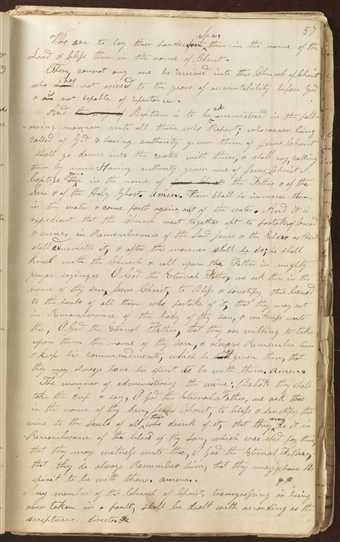 57
Who are to lay their hands upon them in the name of the
Lord & bless them in the name of Christ.
There cannot any one be received into this Church of Christ
who has not arived to the years of accountability before God
& is not capable of repentance.
And Baptism is to be administered in the foll-
owing manner unto all those who Repent; whosoever being
called of God & having authority given them of Jesus Christ
shall go down into the water with them, & shall say, calling
them by name: Having authority given me of Jesus Christ I
baptize thee in the name of the Father & of the
Son & of the Holy Ghost; Amen. Then shall he immerse them
in the water & come forth again out of the water. And it is
expedient that the Church meet together oft to partake of bread
& wine, in Remembrance of the Lord Jesus & the Elder or Priest
shall administer it, & after this manner shall he do; he shall
kneel with the Church & call upon the Father in mighty
prayer saying: O God the Eternal Father, we ask thee in the
name of thy son, Jesus Christ, to bless & sanctify this bread
to the souls of all those who partake of it, that they may eat
in Remembrance of the body of thy son, & witness unto
thee, O God the Eternal Father, that they are willing to take
upon them the name of thy son, & always Remember him
& keep his commandments, which he hath given them, that
they may always have his spirit to be with them. Amen.
The manner of administering the wine: Behold they shall
take the cup & say, O God the Eternal Father, we ask thee
in the name of thy Son, Jesus Christ, to bless & sanctify this
wine to the souls of all those who drink of it, that they may do it in
Remembrance of the blood of thy Son, which was shed for them,
that they may witness unto thee, O God the Eternal Father,
that they do always Remember him, that they may have his
spirit to be with them. amen.
Any member of this Church of Christ, transgressing or being
over taken in a fault, shall be dealt with according as the
scriptures direct.